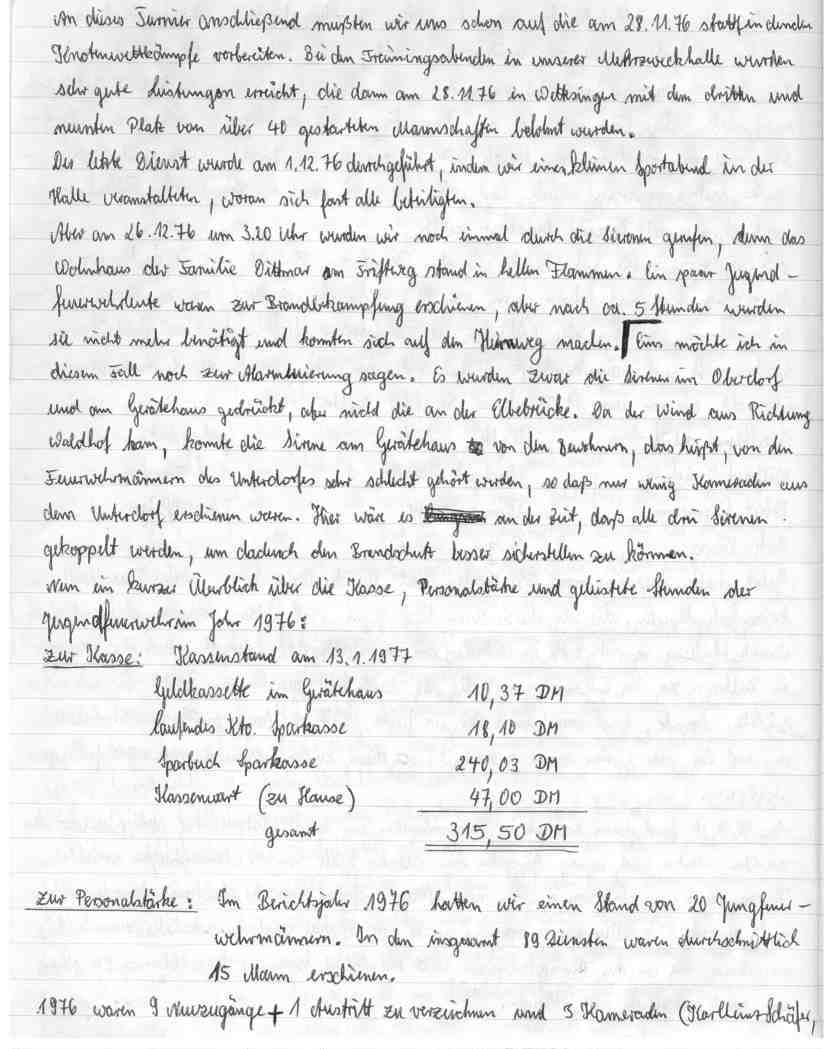 An dieses Turnier anschließend mußten wir uns schon auf die am 28.11.76 stattfindenden
Knotenwettkämpfe vorbereiten. Bei den Trainingsabenden in unserer Mehrzweckhalle wurden
sehr gute Leistungen erreicht, die dann am 28.11.76 in Wettesingen mit dem dritten und
neunten Platz von über 40 gestarteten Mannschaften belohnt wurden.
Der letzte Dienst wurde am 1.12.76 durchgeführt, indem wir einen kleinen Sportabend in der
Halle veranstalteten, woran sich fast alle beteiligten.
Aber am 26.12.76 um 3.20 Uhr wurden wir noch einmal durch die Sirenen gerufen, denn das
Wohnhaus der Familie Dittmar am Triftweg stand in hellen Flammen. Ein paar Jugend-
feuerwehrleute waren zur Brandbekämpfung erschienen, aber nach ca. 5 Stunden wurden
sie nicht mehr benötigt und konnten sich auf den Heimweg machen. Eins möchte ich in
diesem Fall noch zur Alarmierung sagen. Es wurden zwar die Sirenen im Oberdorf
und am Gerätehaus gedrückt, aber nicht die an der Elbebrücke. Da der Wind aus Richtung
Waldhof kam, konnte die Sirene am Gerätehaus von den Bewohnern, das heißt, von den
Feuerwehrmännern des Unterdorfes sehr schlecht gehört werden, so daß nur wenig Kameraden aus
dem Unterdorf erschienen waren. Hier wäre es an der Zeit, daß alle drei Sirenen
gekoppelt werden, um dadurch den Brandschutz besser sicherstellen zu können.
Nun ein kurzer Überblick über die Kasse, Personalstärke und geleistete Stunden der
Jugendfeuerwehr im Jahr 1976:
Zur Kasse: Kassenstand am 13.1.1977
Geldkassette im Gerätehaus 10,37 DM
laufendes Kto. Sparkasse 18,10 DM
Sparbuch Sparkasse 240,03 DM
Kassenwart (zu Hause) 47,00 DM
gesamt 315,50 DM
Zur Personalstärke: Im Berichtsjahr 1976 hatten wir einen Stand von 20 Jungfeuer-
wehrmännern. In den insgesamt 89 Diensten waren durchschnittlich
15 Mann erschienen.
1976 waren 9 Neuzugänge + 1 Austritt zu verzeichnen und 5 Kameraden (Karlheinz Schäfer,